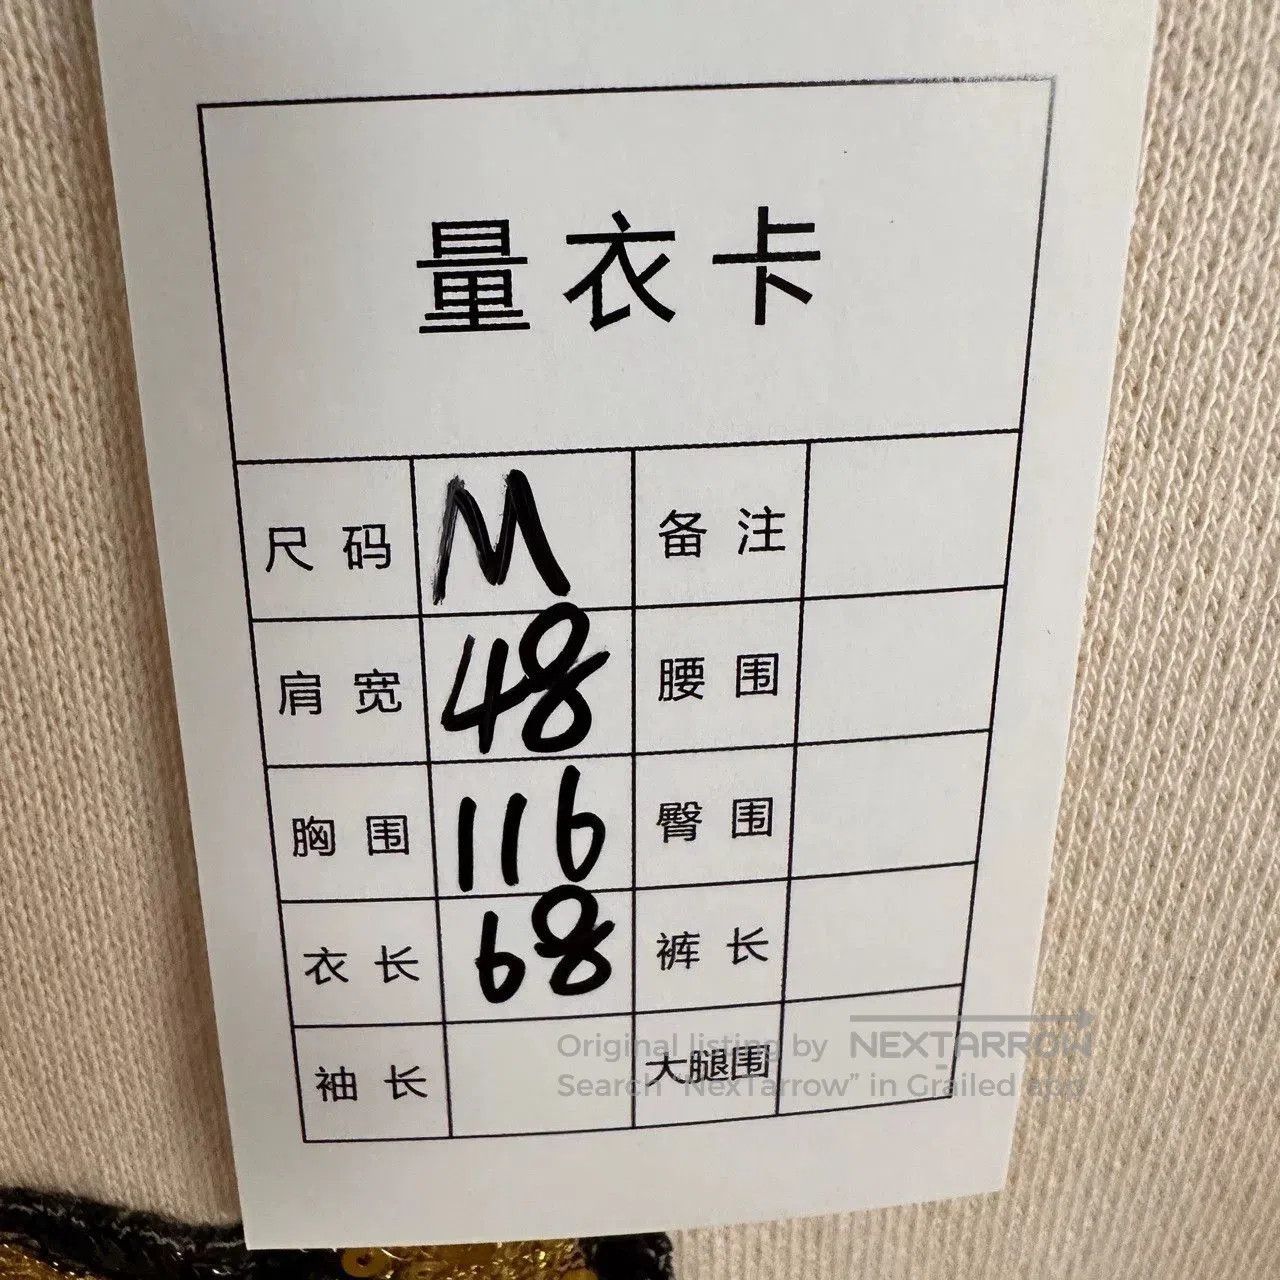 量衣卡
尺码 M 备注
肩宽 48 腰围
胸围 116 臀围
衣长 68 裤长
袖长 大腿围
Original listing by NEXTARROW
Search "NexTarrow" in Grailed app